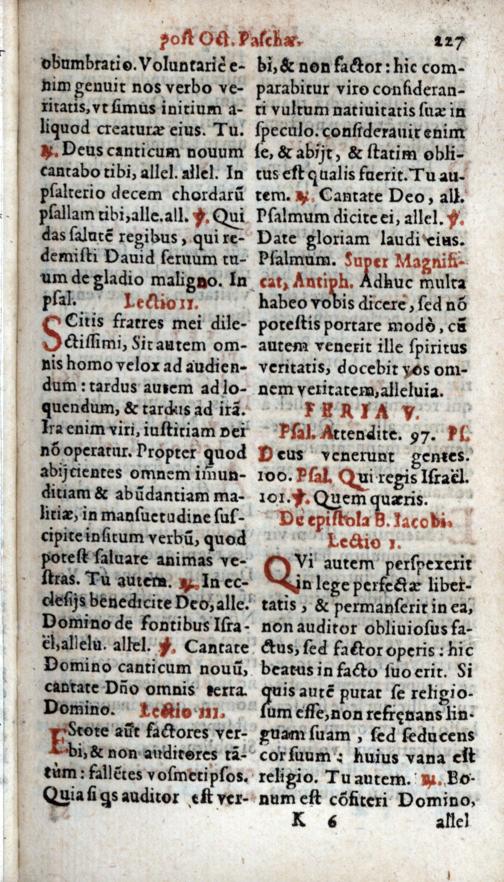 post Oct. Paschæ.
227
obumbratio. Voluntariè e-
nim genuit nos verbo ve-
ritatis, vt simus initium a-
liquod creaturæ eius. Tu.
℟. Deus canticum nouum
cantabo tibi, allel. allel. In
psalterio decem chordarũ
psallam tibi, alle. all. ℣. Qui
das salutẽ regibus, qui re-
demisti Dauid seruum tu-
um de gladio maligno. In
psal. Lectio II.
SCitis fratres mei dile-
ctissimi, Sit autem om-
nis homo velox ad audien-
dum: tardus autem ad lo-
quendum, & tardus ad irã.
Ira enim viri, iustitiam Dei
nõ operatur. Propter quod
abijcientes omnem imun-
ditiam & abũdantiam ma-
litiæ, in mansuetudine sus-
cipite insitum verbũ, quod
potest saluare animas ve-
stras. Tu autem. ℟. In ec-
clesijs benedicite Deo, alle.
Domino de fontibus Isra-
ël, allelu. allel. ℣. Cantate
Domino canticum nouũ,
cantate Dño omnis terra.
Domino. Lectio III.
EStote aũt factores ver-
bi, & non auditores tã-
tùm: fallẽtes vosmetipsos.
Quia si qs auditor est ver-
bi, & non factor: hic com-
parabitur viro consideran-
ti vultum natiuitatis suæ in
speculo. considerauit enim
se, & abijt, & statim obli-
tus est qualis fuerit. Tu au-
tem. ℟. Cantate Deo, all.
Psalmum dicite ei, allel. ℣.
Date gloriam laudi eius.
Psalmum. Super Magnifi-
cat, Antiph. Adhuc multa
habeo vobis dicere, sed nõ
potestis portare modò, cũ
autem venerit ille spiritus
veritatis, docebit vos om-
nem veritatem, alleluia.
FERIA V.
Psal. Attendite. 97. Ps.
Deus venerunt gentes.
100. Psal. Qui regis Israël.
101. ℣. Quem quæris.
De epistola B. Iacobi.
Lectio I.
QVi autem perspexerit
in lege perfectæ liber-
tatis, & permanserit in ea,
non auditor obliuiosus fa-
ctus, sed factor operis: hic
beatus in facto suo erit. Si
quis autẽ putat se religio-
sum esse, non refręnans lin-
guam suam, sed seducens
cor suum: huius vana est
religio. Tu autem. ℟. Bo-
num est cõfiteri Domino,
K 6
allel